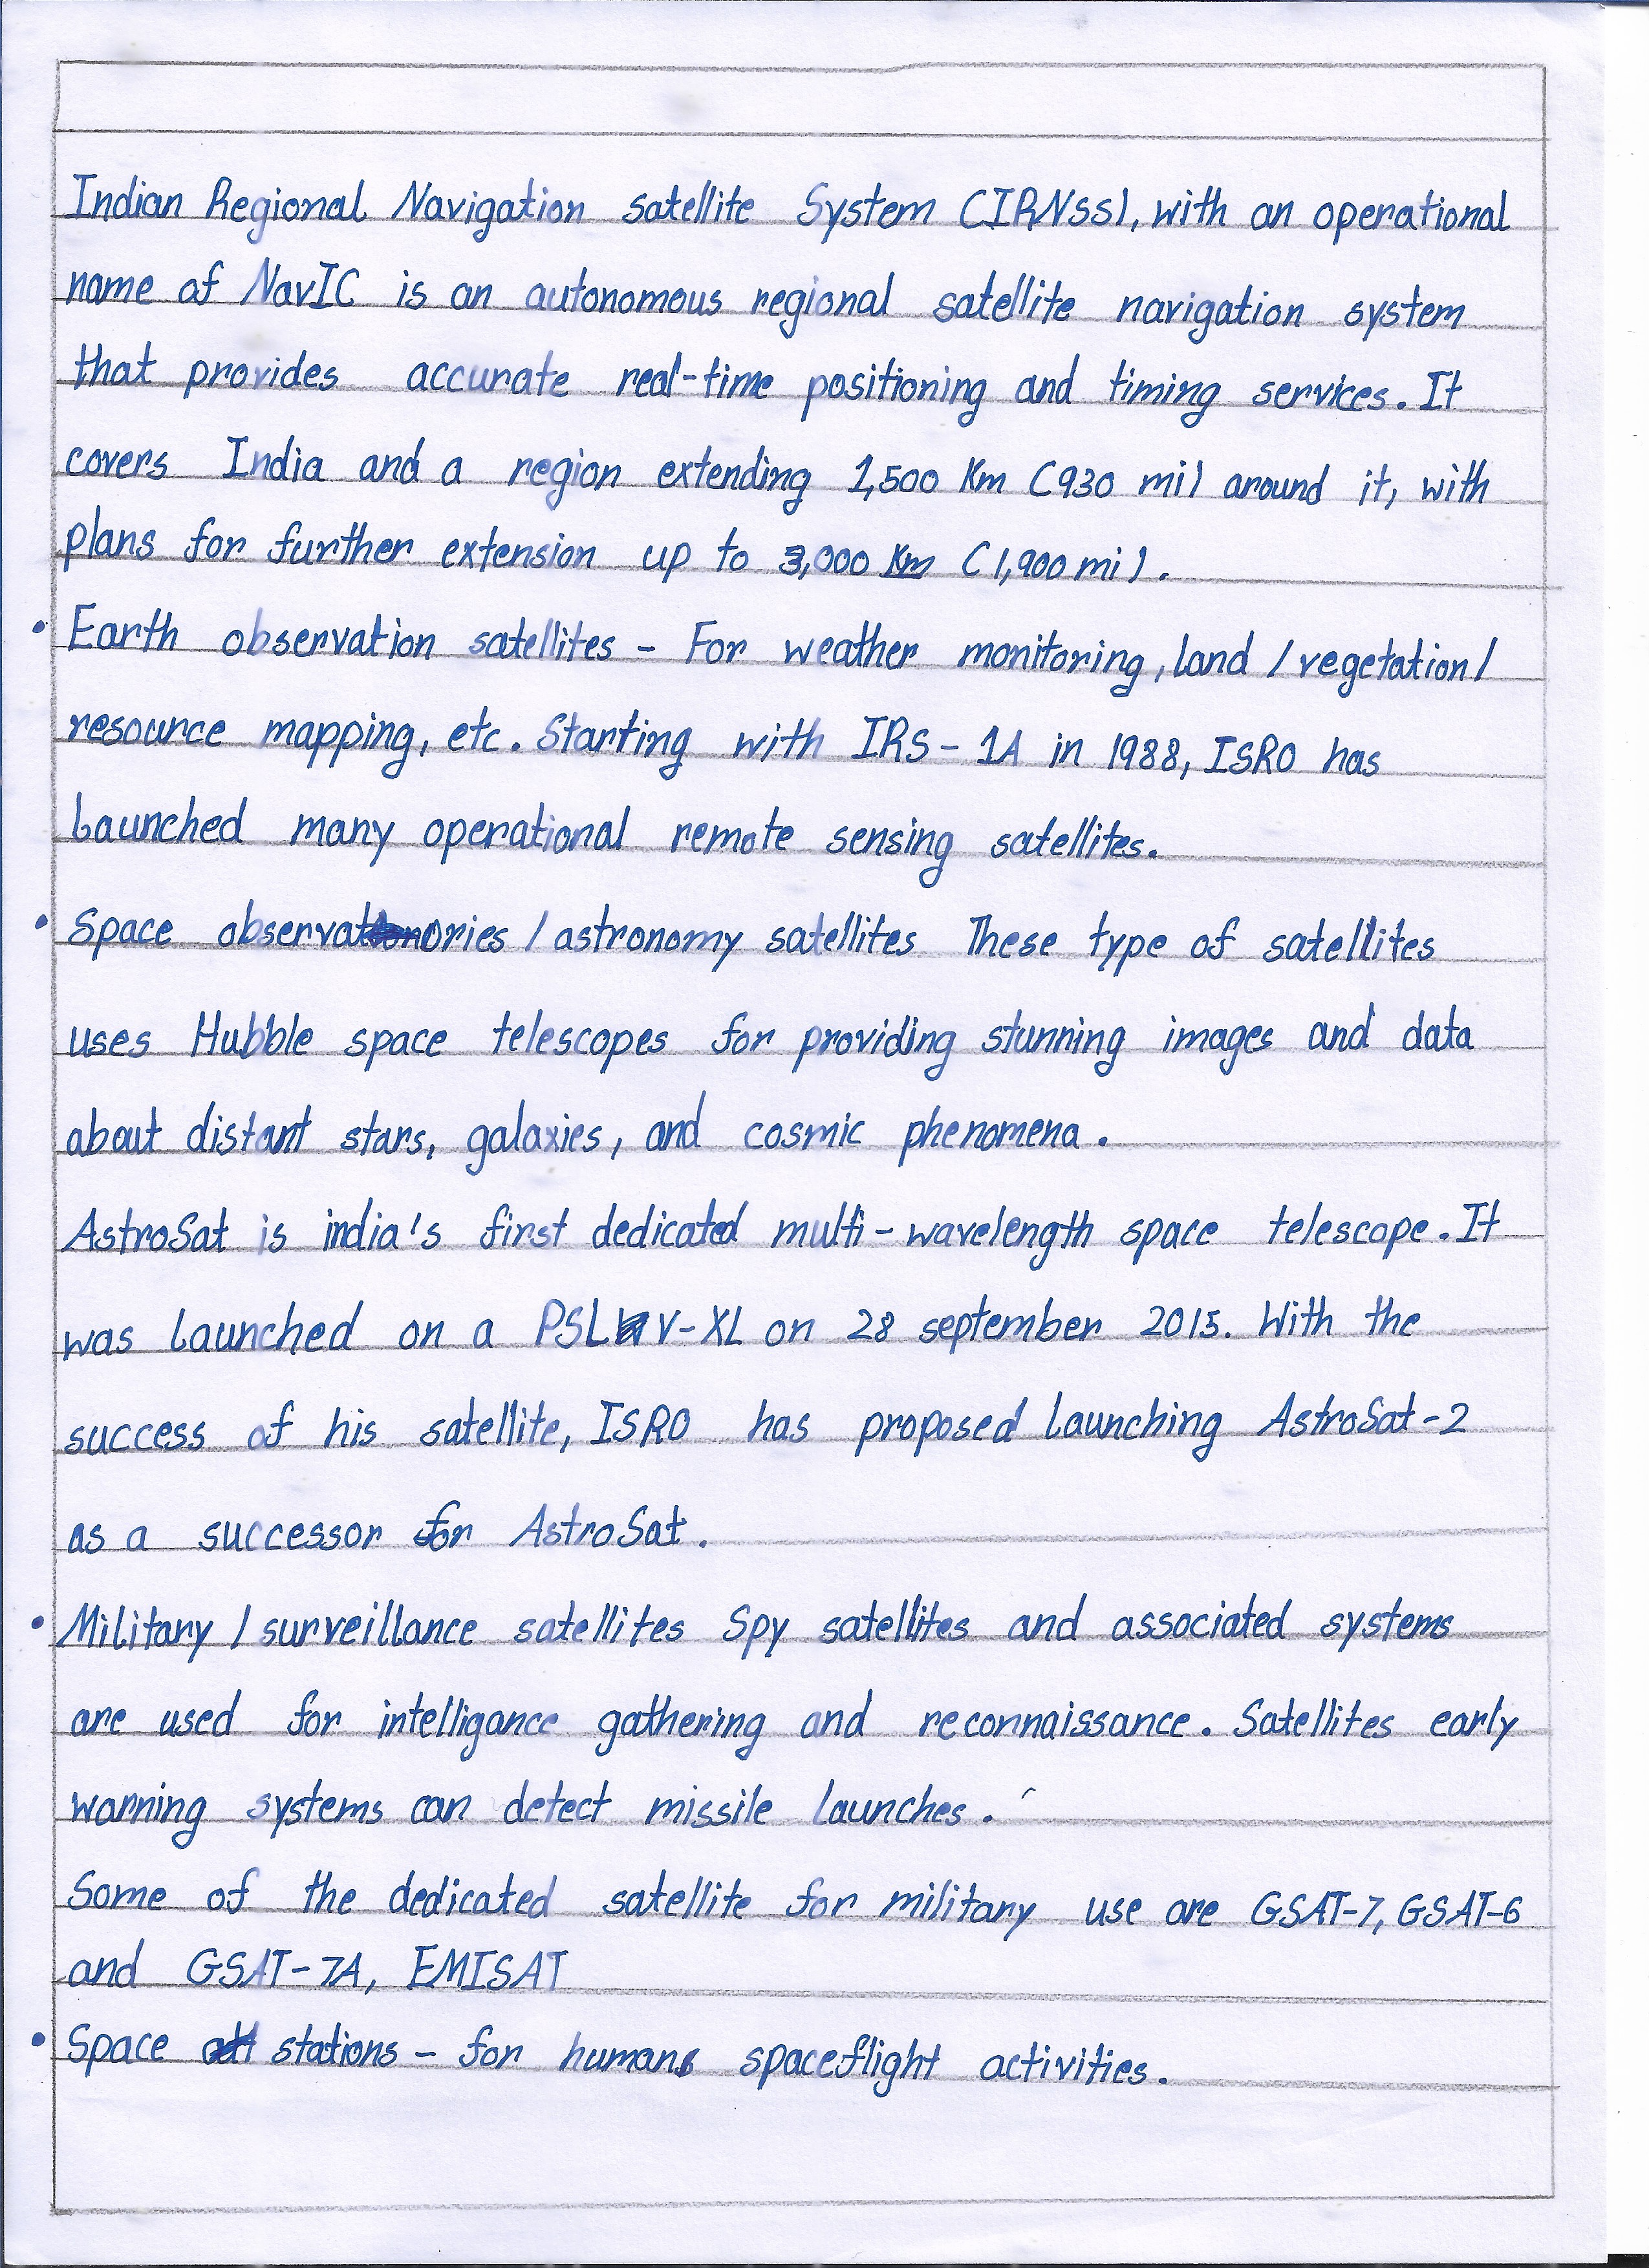 Indian Regional Navigation satellite System (IRNSS), with an operational
name of NavIC is an autonomous regional satellite navigation system
that provides accurate real-time positioning and timing services. It
covers India and a region extending 1,500 Km (930 mi) around it, with
plans for further extension up to 3,000 Km (1,900 mi).
• Earth observation satellites - For weather monitoring, land / vegetation /
resource mapping, etc. Starting with IRS - 1A in 1988, ISRO has
launched many operational remote sensing satellites.
• Space observatories / astronomy satellites These type of satellites
uses Hubble space telescopes for providing stunning images and data
about distant stars, galaxies, and cosmic phenomena.
AstroSat is india's first dedicated multi - wavelength space telescope. It
was launched on a PSLV-XL on 28 september 2015. With the
success of his satellite, ISRO has proposed launching AstroSat-2
as a successor for AstroSat.
• Military / surveillance satellites Spy satellites and associated systems
are used for intelligance gathering and reconnaissance. Satellites early
warning systems can detect missile launches.
Some of the dedicated satellite for military use are GSAT-7, GSAT-6
and GSAT-7A, EMISAT
• Space stations - for humans spaceflight activities.